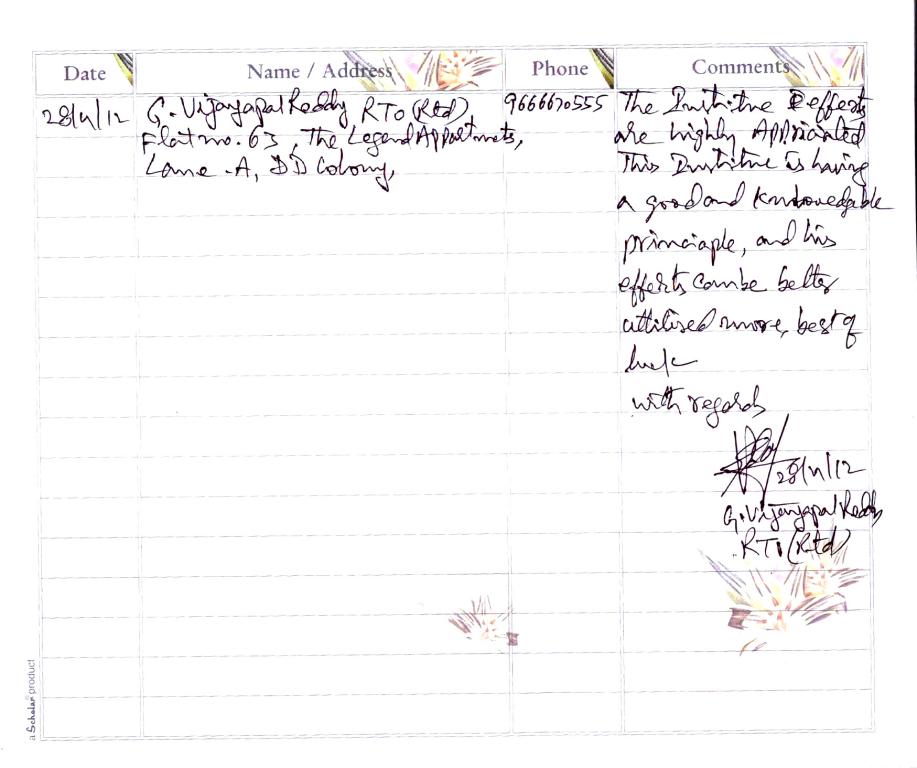 Date Name / Address Phone Comments
28/4/12 G. Vijayapal Reddy RTO (Rtd) 9666670555 The Instititue efforts
Flat no. 63, The Legend Appartments, are highly Appriciated
Lane -A, DD Colony, This Instititue is having
a good and knowledgable
princiaple, and his
efforts can be better
uttilised more, best of
luck
with regards
28/4/12
G. Vijayapal Reddy
RTO (Rtd)
a Scholar product